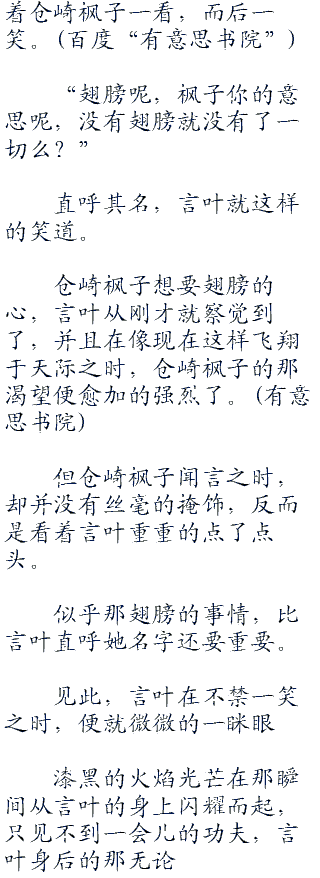 着仓崎枫子一看，而后一
笑。(百度“有意思书院”)
“翅膀呢，枫子你的意
思呢，没有翅膀就没有了一
切么？”
直呼其名，言叶就这样
的笑道。
仓崎枫子想要翅膀的
心，言叶从刚才就察觉到
了，并且在像现在这样飞翔
于天际之时，仓崎枫子的那
渴望便愈加的强烈了。(有意
思书院)
但仓崎枫子闻言之时，
却并没有丝毫的掩饰，反而
是看着言叶重重的点了点
头。
似乎那翅膀的事情，比
言叶直呼她名字还要重要。
见此，言叶在不禁一笑
之时，便就微微的一眯眼
漆黑的火焰光芒在那瞬
间从言叶的身上闪耀而起，
只见不到一会儿的功夫，言
叶身后的那无论